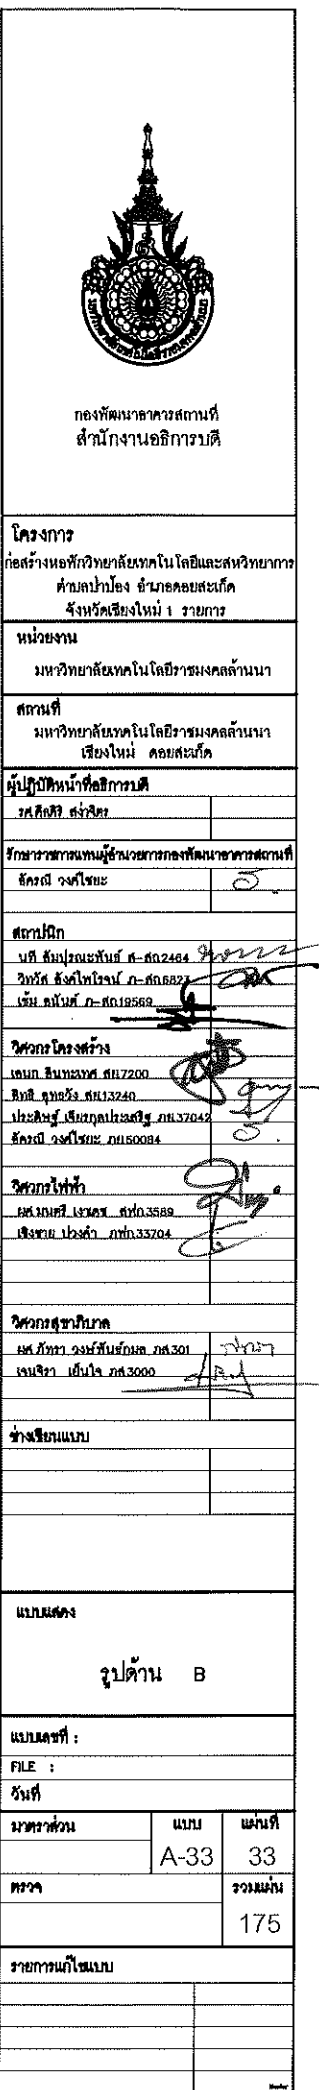 กองพัฒนาอาคารสถานที่
สำนักงานอธิการบดี
โครงการ
ก่อสร้างหอพักวิทยาลัยเทคโนโลยีและสหวิทยาการ
ตำบลป่าป้อง อำเภอดอยสะเก็ด
จังหวัดเชียงใหม่ 1 รายการ
หน่วยงาน
มหาวิทยาลัยเทคโนโลยีราชมงคลล้านนา
สถานที่
มหาวิทยาลัยเทคโนโลยีราชมงคลล้านนา
เชียงใหม่ ดอยสะเก็ด
ผู้ปฏิบัติหน้าที่อธิการบดี
รศ.ศีลศิริ สง่าจิตร
รักษาราชการแทนผู้อำนวยการกองพัฒนาอาคารสถานที่
อัครณี วงศ์ไชยะ
สถาปนิก
นที สัมปุรณะพันธ์ ส-สถ2464
วิทวัส สิงห์ไพโรจน์ ภ-สถ6827
เข้ม อนันต์ ภ-สถ19569
วิศวกรโครงสร้าง
เอนก สินทะเทศ สย7200
สิทธิ อุทธวัง สย13240
ประดิษฐ์ เจียรกุลประเสริฐ ภย37042
อัครณี วงศ์ไชยะ ภย50084
วิศวกรไฟฟ้า
ผศ.มนตรี เงาเดช สฟก.3589
เชิงชาย ปวงคำ ภฟก.33704
วิศวกรสุขาภิบาล
ผศ.ภัทรา วงษ์พันธ์กมล ภส.301
เจนจิรา เย็นใจ ภส.3000
ช่างเขียนแบบ
แบบแสดง
รูปด้าน B
แบบเลขที่ :
FILE :
วันที่
มาตราส่วน แบบ แผ่นที่
A-33 33
ตรวจ รวมแผ่น
175
รายการแก้ไขแบบ